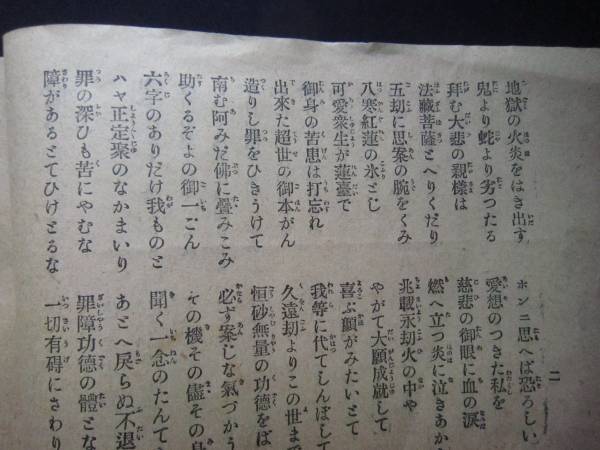 二
地獄の火炎をはき出す
ホンニ思へば恐ろしい
鬼より蛇より劣つたる
愛想のつきた私を
拜む大悲の親樣は
慈悲の御眼に血の涙
法藏菩薩とへりくだり
燃へ立つ炎に泣きあか
五劫に思案の腕をくみ
兆載永劫火の中や
八寒紅蓮の氷とじ
やがて大願成就して
可愛衆生が蓮臺で
喜ぶ顏がみたいとて
御身の苦患は打忘れ
我等に代てしんぼして
出來た超世の御本がん
久遠劫よりこの世まで
造りし罪をひきうけて
恒砂無量の功德をば
南む阿みだ佛に疊みこみ
必ず案じな氣づかう
助くるぞよの御一ごん
その機その儘その
六字のありだけ我ものと
聞く一念のたんて
ハヤ正定聚のなかまいり
あとへ戻らぬ不退
罪の深ひも苦にやむな
罪障功德の體とな
障があるとてひけとるな
一切有碍にさわり